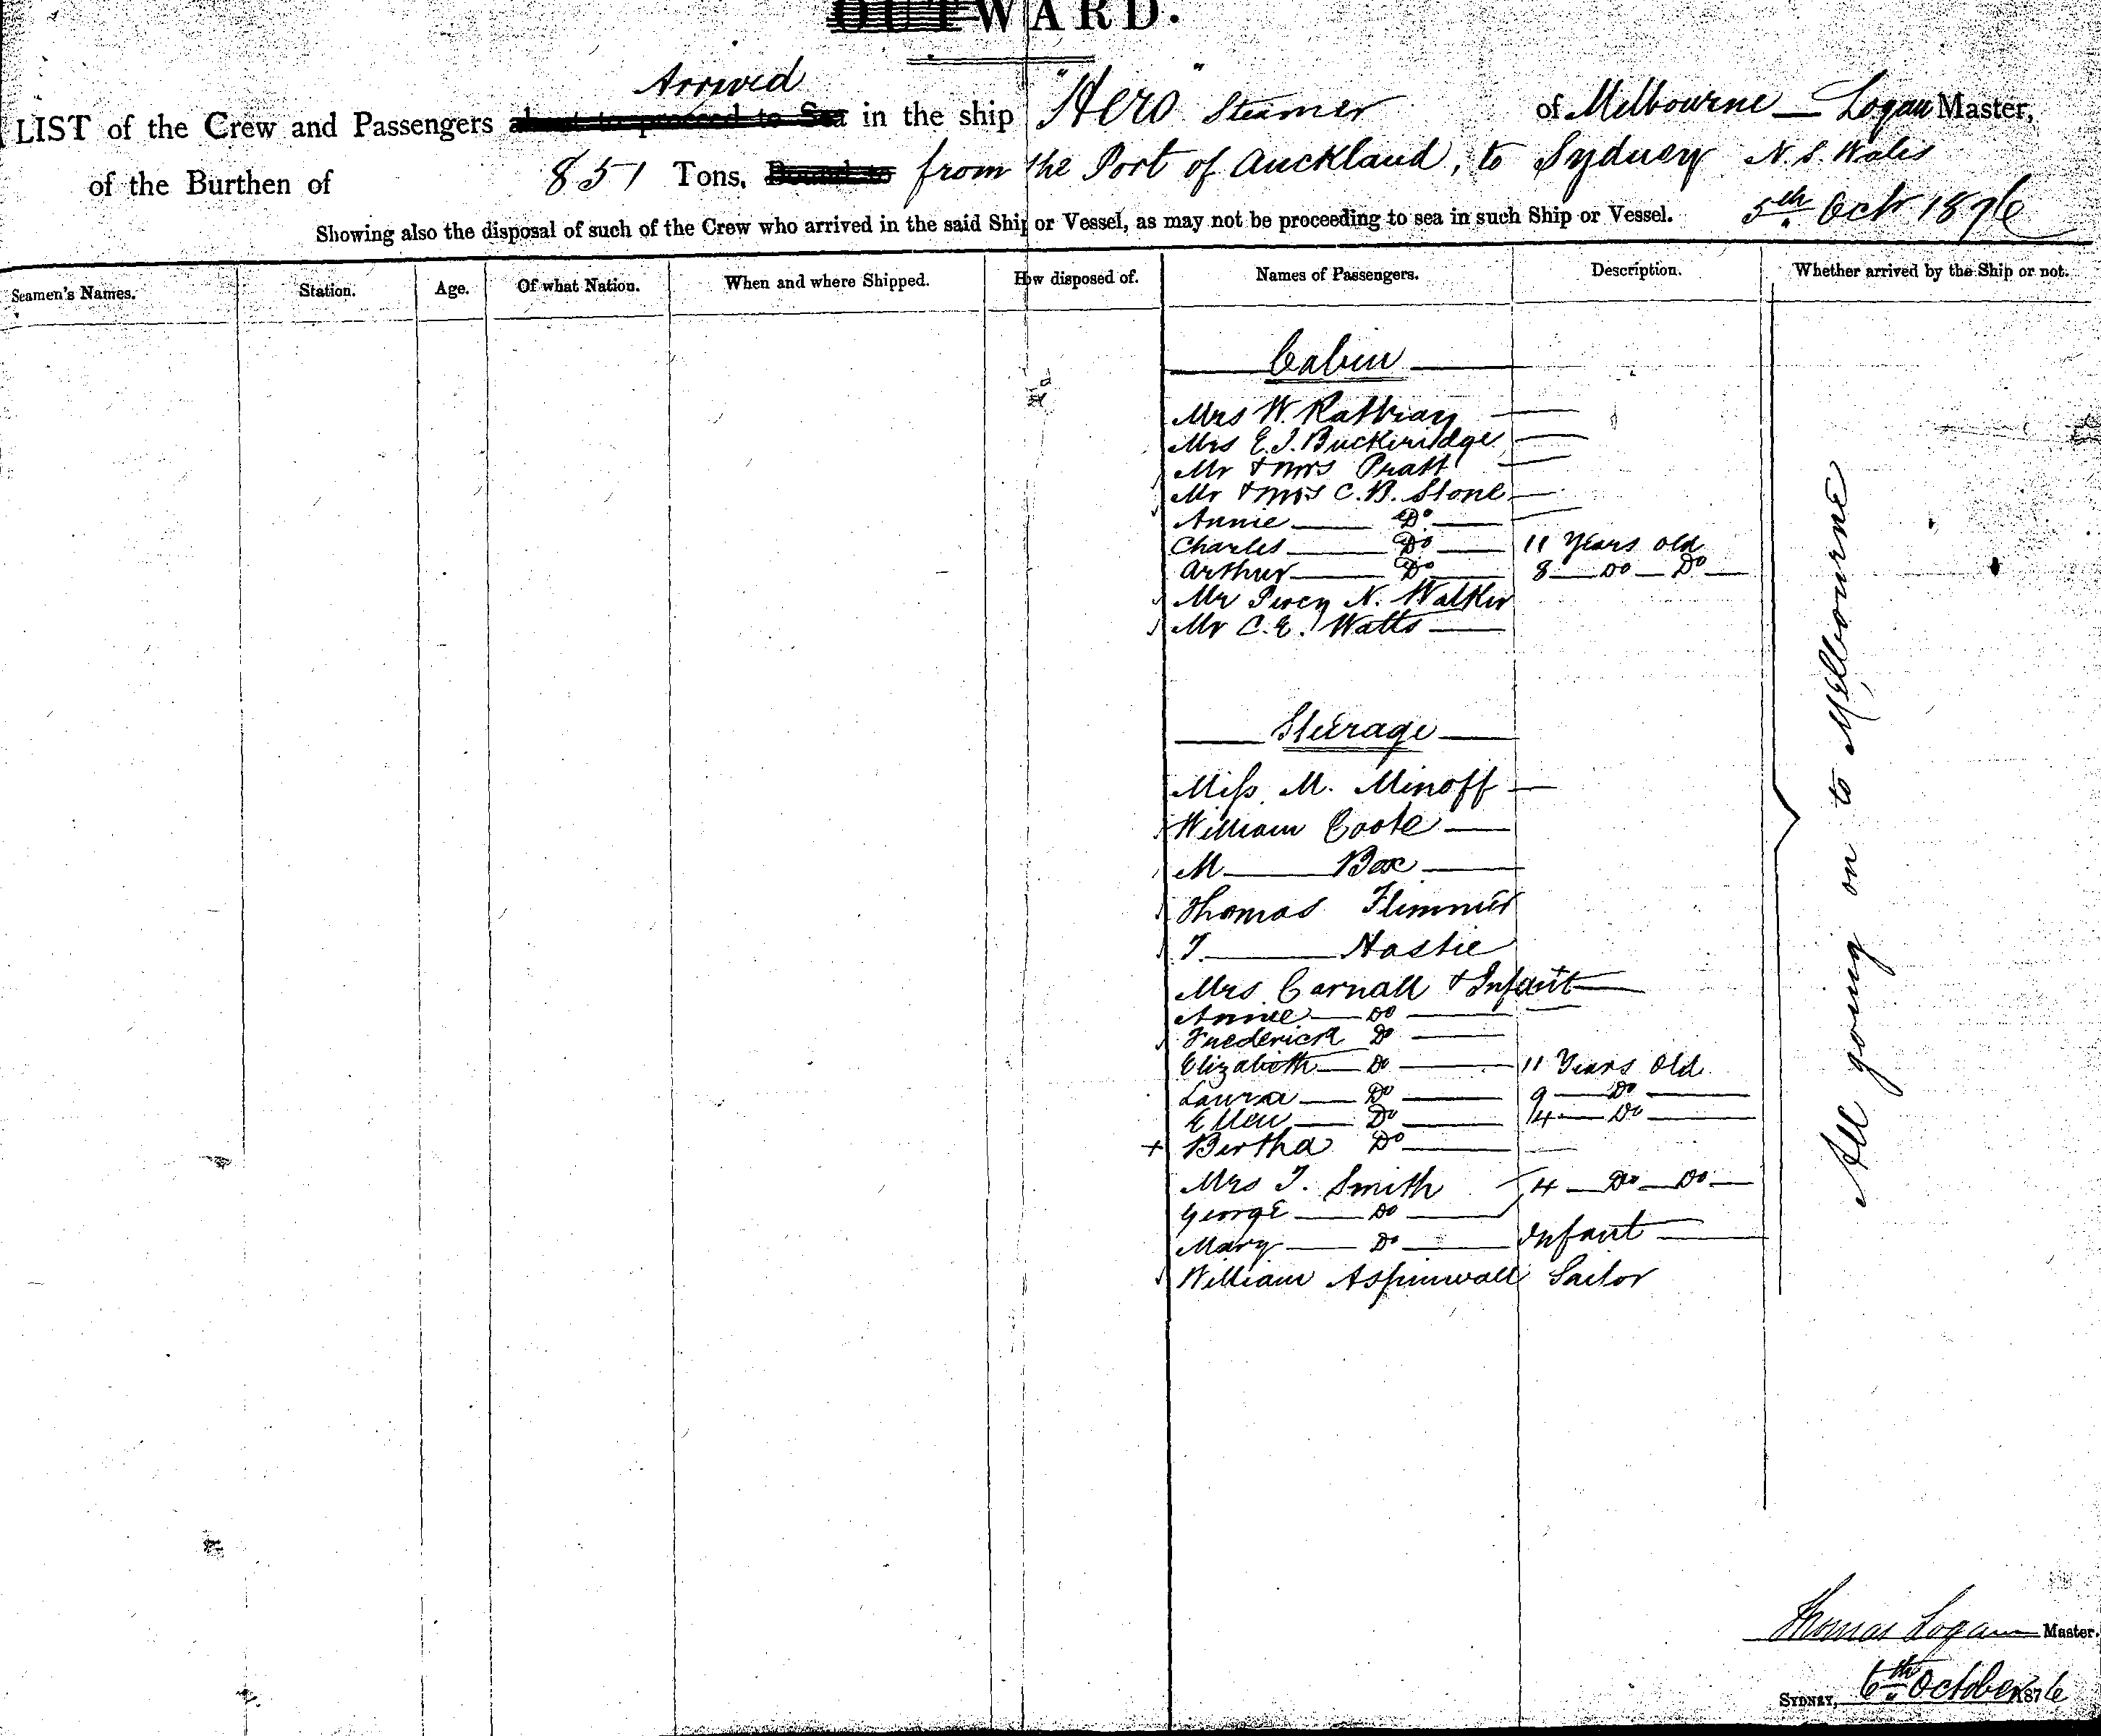 OUTWARD.
Arrived
LIST of the Crew and Passengers about to proceed to Sea in the ship "Hero" Steamer of Melbourne — Logan Master,
of the Burthen of 851 Tons, Bound to from the Port of Auckland, to Sydney N. S. Wales
Showing also the disposal of such of the Crew who arrived in the said Ship or Vessel, as may not be proceeding to sea in such Ship or Vessel. 5th Octr 1876
Seamen's Names. Station. Age. Of what Nation. When and where Shipped. How disposed of. Names of Passengers. Description. Whether arrived by the Ship or not.
Cabin
Mrs W.
Mrs E. J. Buckeridge
Mr & Mrs Pratt
Mr & Mrs C. B. Stone
Annie Do
Charles Do 11 Years old
Arthur Do 8 Do Do
Mr Percy N. Walker
Mr C. E. Watts
Steerage
Miss M. Minoff
William Coote
M Box
Thomas
T. Hastie
Mrs Carnall & Infant
Annie Do
Frederick Do
Elizabeth Do 11 Years Old
Laura Do 9 Do
Ellen Do 4 Do
+ Bertha Do
Mrs T. Smith 4 Do Do
George Do
Mary Do Infant
William Aspinwall Sailor
All going on to Melbourne
Thomas Logan Master.
SYDNEY, 6th October 1876